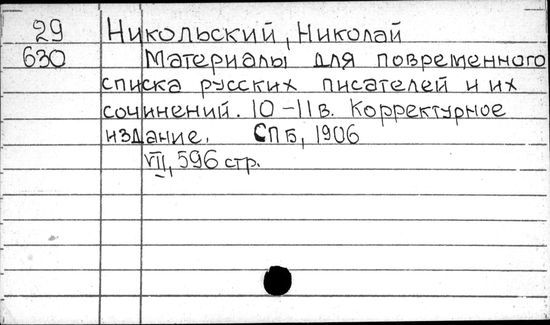 29 Никольский, Николай
630 Материалы для повременного
списка русских писателей и их
сочинений. 10-11 в. Корректурное
издание. СПБ, 1906
VII, 596 стр.